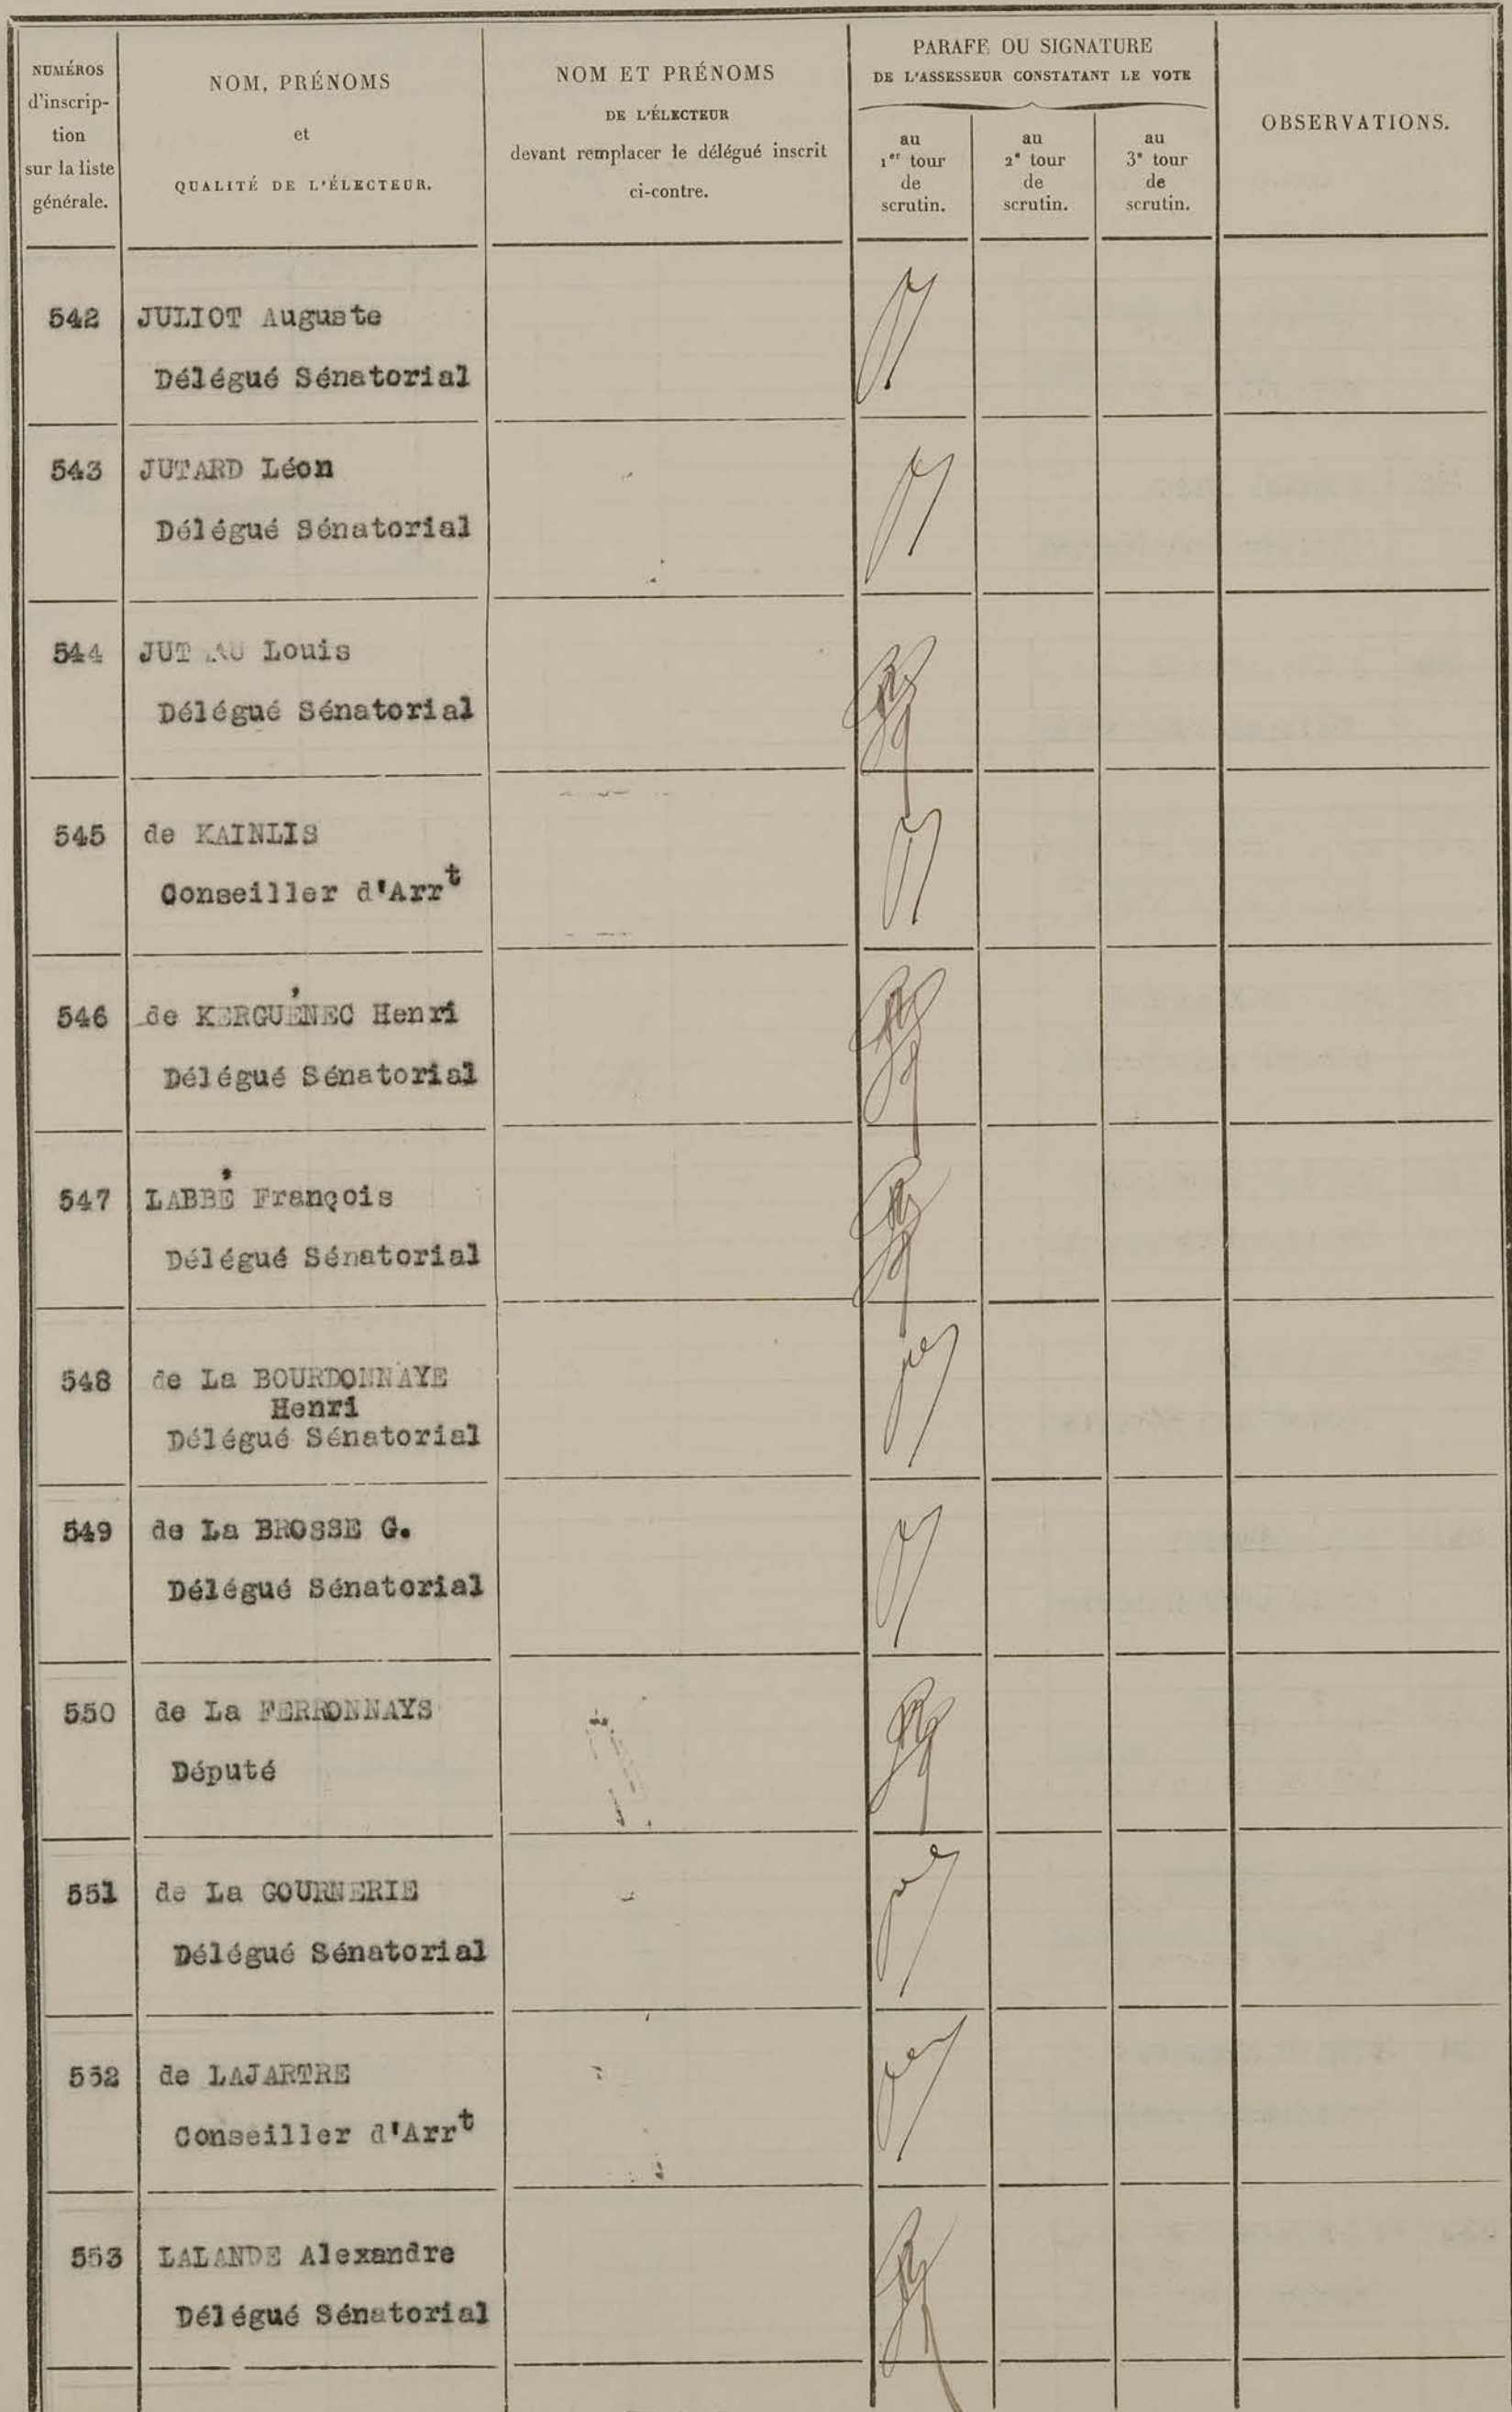 NUMÉROS
d'inscrip-
tion
sur la liste
générale.
NOM, PRÉNOMS
et
QUALITÉ DE L'ÉLECTEUR.
NOM ET PRÉNOMS
DE L'ÉLECTEUR
devant remplacer le délégué inscrit
ci-contre.
PARAFE OU SIGNATURE
DE L'ASSESSEUR CONSTATANT LE VOTE
au
1er tour
de
scrutin.
au
2e tour
de
scrutin.
au
3e tour
de
scrutin.
OBSERVATIONS.
542 JULIOT Auguste
Délégué Sénatorial
543 JUTARD Léon
Délégué Sénatorial
544 Louis
Délégué Sénatorial
545 de KAINLIS
Conseiller d'Arrt
546 de KERGUÉNEC Henri
Délégué Sénatorial
547 LABBÉ François
Délégué Sénatorial
548 de La BOURDONNAYE
Henri
Délégué Sénatorial
549 de La BROSSE G.
Délégué Sénatorial
550 de La FERRONNAYS
Député
551 de La GOURNERIE
Délégué Sénatorial
552 de LAJARTRE
Conseiller d'Arrt
553 LALANDE Alexandre
Délégué Sénatorial